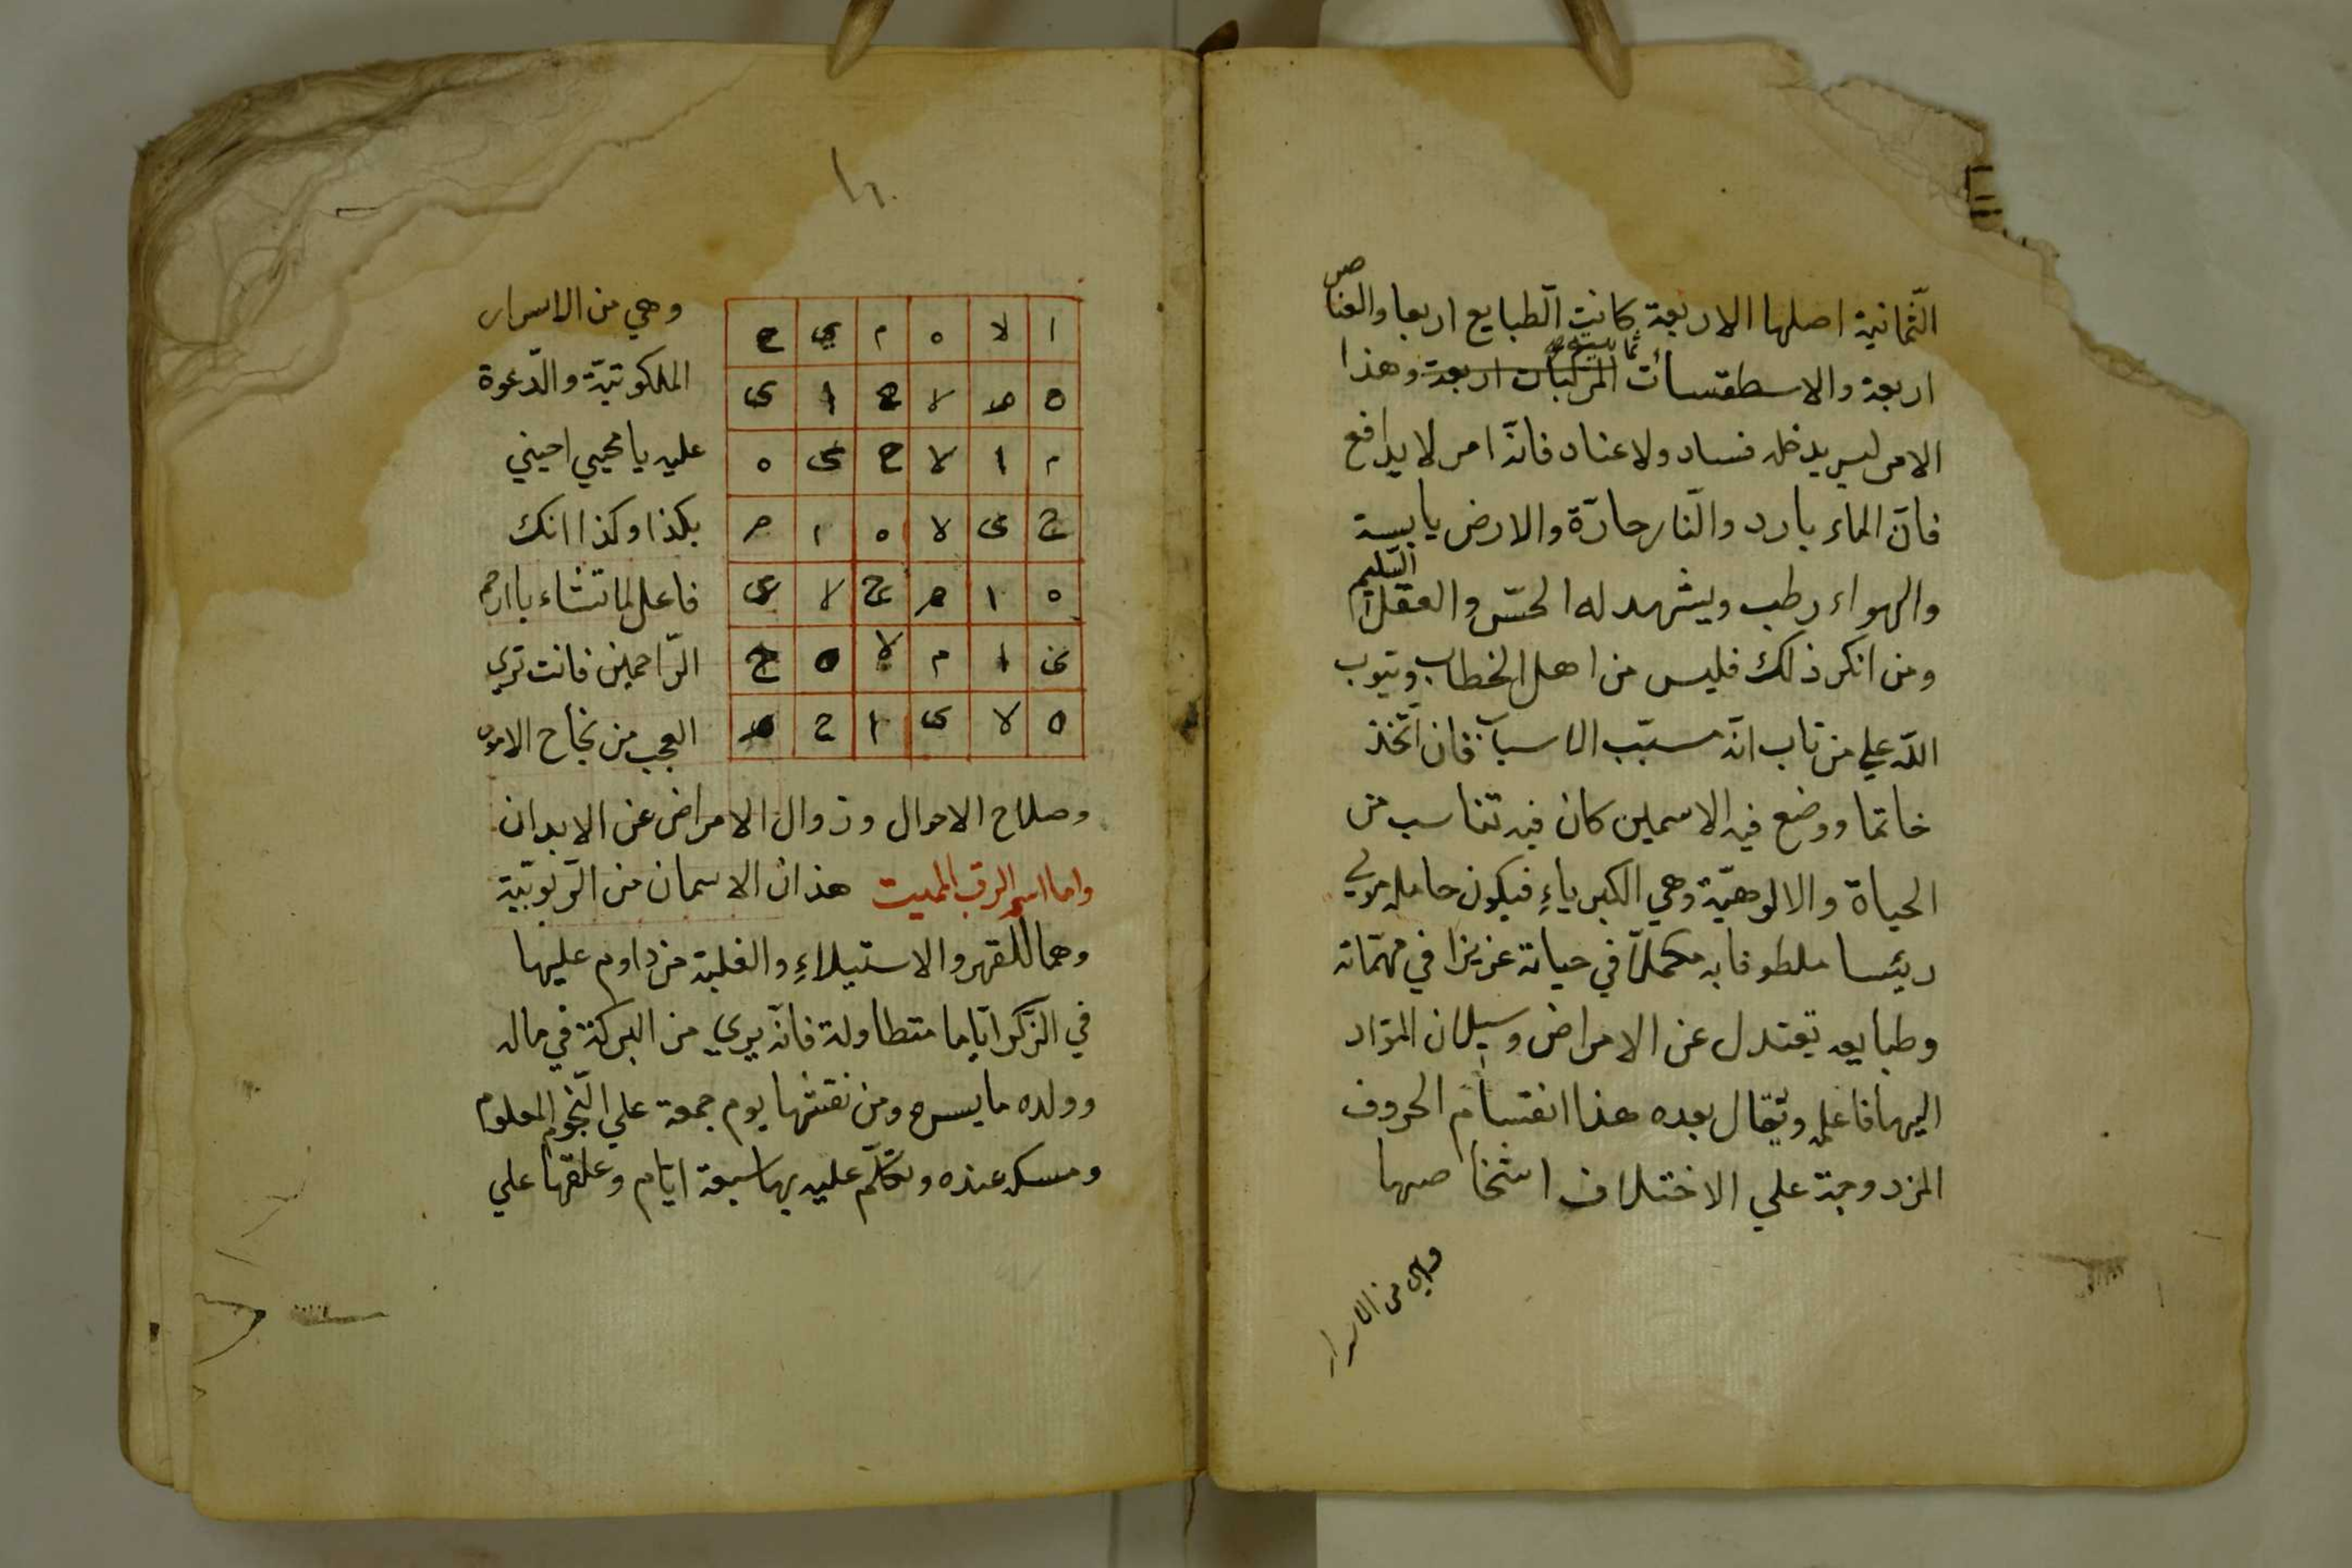 الثّمانية اصلها الاربعة كانت الطّبايع اربعا والعناصر
اربعة والاسطقسات المركبات اربعة وهذا
الامر ليس يدخله فساد ولا عناد فانّه امر لا يدافع
فانّ الماء بارد والنّار حارّة والارض يابسة
والهواء رطب ويشهد له الحسّ والعقل السّليم
ومن انكر ذلك فليس من اهل الخطاب ويتوب
اللّه علي من تاب انّه مسبّب الاسباب فان اتّخذ
خاتما ووضع فيه الاسمين كان فيه تناسب من
الحياة والالوهيّة وهي الكبرياءِ فيكون حامله
رئيسا ملطوفا به مكملاً في حياته عزيزا في مهمّاته
وطبايعه تعتدل عن الامراض وسيلان الموّاد
اليها فاعلم ويقال بعده هذا انقسام الحروف
المزدوجة علي الاختلاف اشخاصها
وهي من الاسرار
ا لا ه م ي ح
ه م لا ح ا ى
م ا لا ح ى ه
ح ى لا ه ا م
ه ا م ح لا ى
ى ا م لا ه ح
ه لا ى ا ح م
وهي من الاسرار
الملكوتيّة والدّعوة
عليه يا محيي احيني
بكذا وكذا انك
فاعل لما تشاء يا ارحم
الرّاحمين فانت تري
العجب من نجاح الامور
وصلاح الاحوال وزوال الامراض عن الابدان
واما اسم الرب المميت هذان الاسمان من الرّبوبيّة
وهما للقهر والاستيلاءِ والغلبة من داوم عليها
في الذّكر ايّاما متطاولة فانّه يري من البركة في ماله
وولده ما يسره ومن نقشها يوم جمعة علي النّجوم المعلوم
ومسكه عنده وتكلّم عليه بها سبعة ايّام وعلقها علي